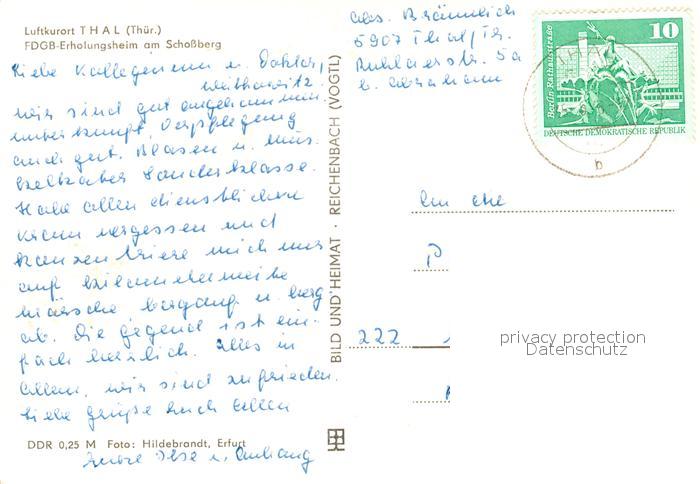 Luftkurort THAL (Thür.)
FDGB-Erholungsheim am Schoßberg
Liebe Kolleginnen u. Doktor,
wir sind gut angekommen.
Unterkunft, Verpflegung
auch gut. Blasen u. Mus-
kelkater Sonderklasse.
Habe allen dienstlichen
Kram vergessen und
konzentriere mich nur
auf kilometerweite
Märsche, bergauf u. berg-
ab. Die Gegend ist ein-
fach herrlich. Alles in
Allem, wir sind zufrieden.
Liebe Grüße Euch Allen
DDR 0,25 M Foto: Hildebrandt, Erfurt
Eure Ilse u. Anhang
BILD UND HEIMAT · REICHENBACH (VOGTL)
Abs. Bräunlich
5907 Thal/Th.
Ruhlaerstr. 5a
b. Abraham
10
Berlin Rathausstraße
DEUTSCHE DEMOKRATISCHE REPUBLIK
THAL
b
An die
P
222
privacy protection
Datenschutz